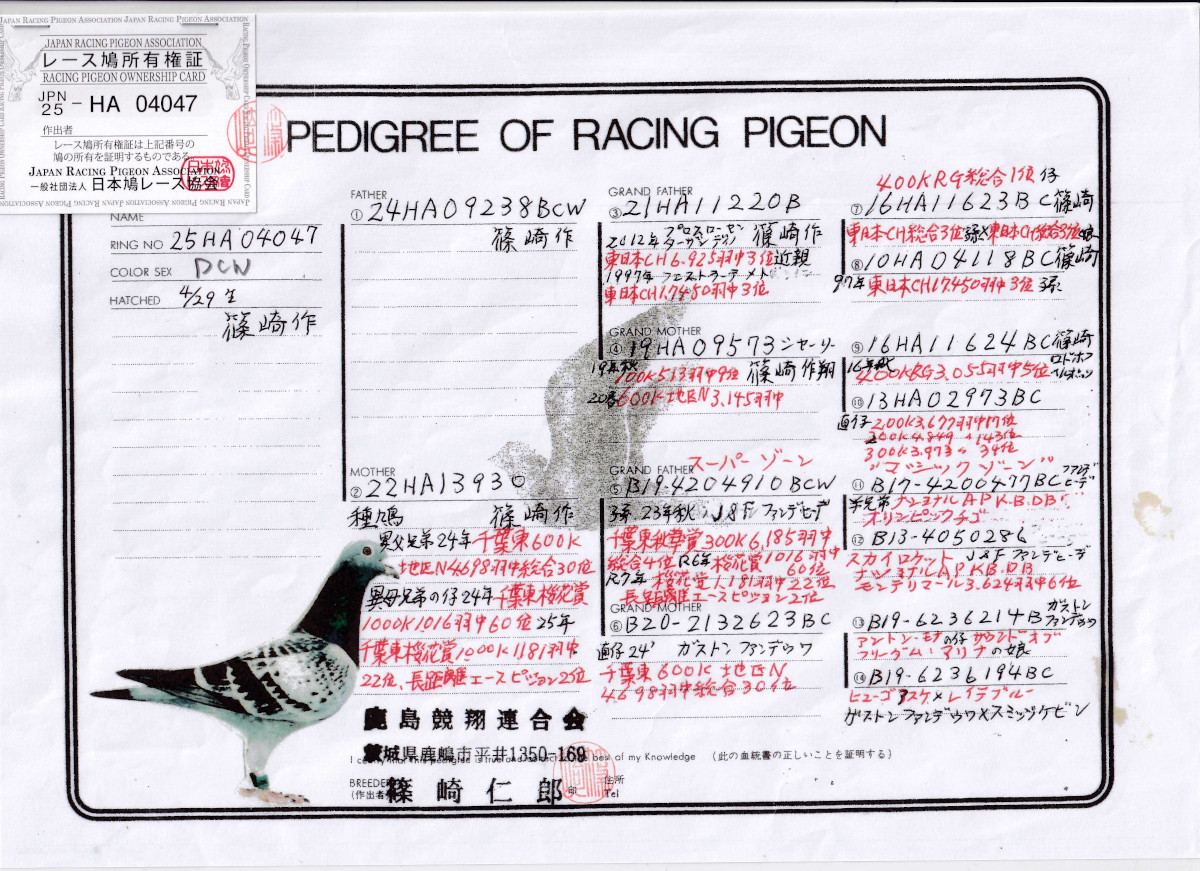 JAPAN RACING PIGEON ASSOCIATION JAPAN RACING PIGEON ASSOCIATION
JAPAN RACING PIGEON ASSOCIATION
レース鳩所有権証
RACING PIGEON OWNERSHIP CARD
JPN 25 - HA 04047
作出者
レース鳩所有権証は上記番号の
鳩の所有を証明するものである。
JAPAN RACING PIGEON ASSOCIATION
一般社団法人 日本鳩レース協会
PEDIGREE OF RACING PIGEON
NAME
RING NO 25HA04047
COLOR SEX DCW
HATCHED 4/29生
篠崎作
FATHER
① 24HA09238BCW
篠崎作
MOTHER
② 22HA13930
種鳩 篠崎作
異父兄弟24年千葉東600K
地区N4698羽中総合30位
異母兄弟の仔24年千葉東桜花賞
1000K1016羽中60位 25年
千葉東桜花賞1000K1181羽中
22位、長距離エースピジョン2位
GRAND FATHER
③ 21HA11220B
2012年 篠崎作
東日本CH6.925羽中3位近親
1997年
東日本CH17,450羽中3位
GRAND MOTHER
④ 19HA09573シャーリー
19年秋
100K513羽中9位 篠崎作翔
600K地区N3.145羽中
GRAND FATHER スーパーゾーン
⑤ B19-4204910BCW
孫 23年秋 J&F
千葉東秋華賞300K6,185羽中
総合4位 R6年桜花賞1016羽中
60位
R7年 桜花賞1,181羽中22位
長距離エースピジョン2位
GRAND MOTHER
⑥ B20-2132623BC
直仔24' ガストンファンデウワ
千葉東600K地区N
4698羽中総合30位
400KRG総合1位 仔
⑦ 16HA11623BC篠崎
東日本CH総合3位孫×東日本CH総合3位
⑧ 10HA04118BC篠崎
97年東日本CH17450羽中3位 孫
⑨ 16HA11624BC篠崎
16年秋
200KRG3.055羽中5位
⑩ 13HA02973BC
直仔 200K3,677羽中17位
200K4.849 〃 143位
300K3.973 〃 34位
"マジックゾーン"
⑪ B17-4200477BC
半兄弟ナショナルAPK.B.DB
オリンピックチゴ
⑫ B13-405028
スカイロケット J&F ファンデヒーデ
ナショナルAPKB.DB
モンテリマール3.624羽中6位
⑬ B19-6236214B ガストンファンデウワ
アントン・モナの仔 サウンドオブ
フリーダム・マリナの娘
⑭ B19-6236194BC
ヒューゴ スケ×レイデブルー
ゲストンファンデウワ×スミッツケビン
鹿島競翔連合会
茨城県鹿嶋市平井1350-169
I certify that this pedigree is true and correct to the best of my Knowledge (此の血統書の正しいことを証明する)
BREEDER
(作出者) 篠崎仁郎 印
住所
Tel